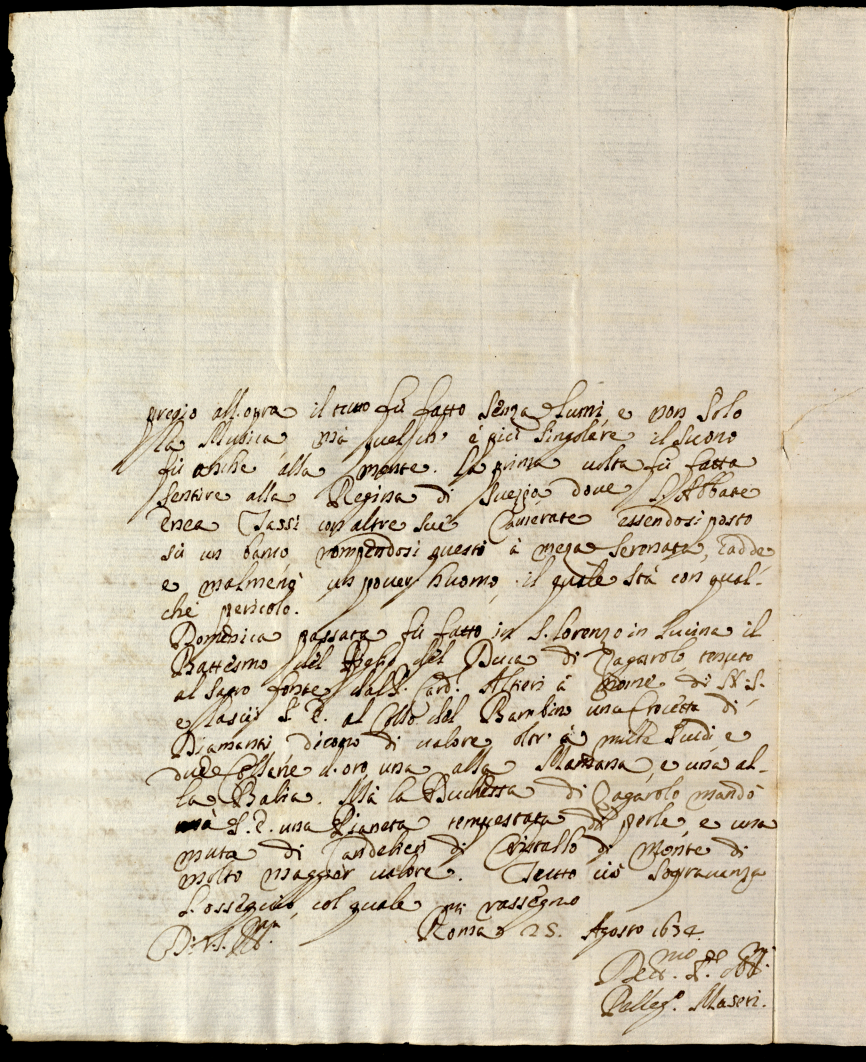 pregio all'opra il tutto fù fatto senza lumi, e non solo
la Musica, mà quel ch' è più singolare il suono
fù anche alla mente. La prima volta fù fatta
sentire alla Regina di Suezia dove l'Abbate
Enea Tassi con altre sue Camerate essendosi posto
sù un banco rompendosi questi à meza serenata, cadde
e malmenò un pouer huomo, il quale stà con qual-
che pericolo.
Domenica passata fù fatto in S. Lorenzo in Lucina il
Battesimo del figlio del Duca di Zagarolo tenuto
al sacro fonte dal S. Card. Altieri à nome di N. S.
e lasciò S. E. al Collo del Bambino una Crocetta di
Diamanti, dicono di valore oltr' à mille scudi e
due Collane d'oro una alla Mammana, e una al-
la Balia. Mà la Duchessa di Zagarolo mandò
à S. E. una Pianeta tempestata di perle, e una
muta di Candelieri di Cristallo di Monte di
molto maggior valore. Tutto ciò
l'ossequio, col quale mi rassegno
Di V. S. Ill.ma Roma 25. Agosto 1674
Pelleg.o Maseri.